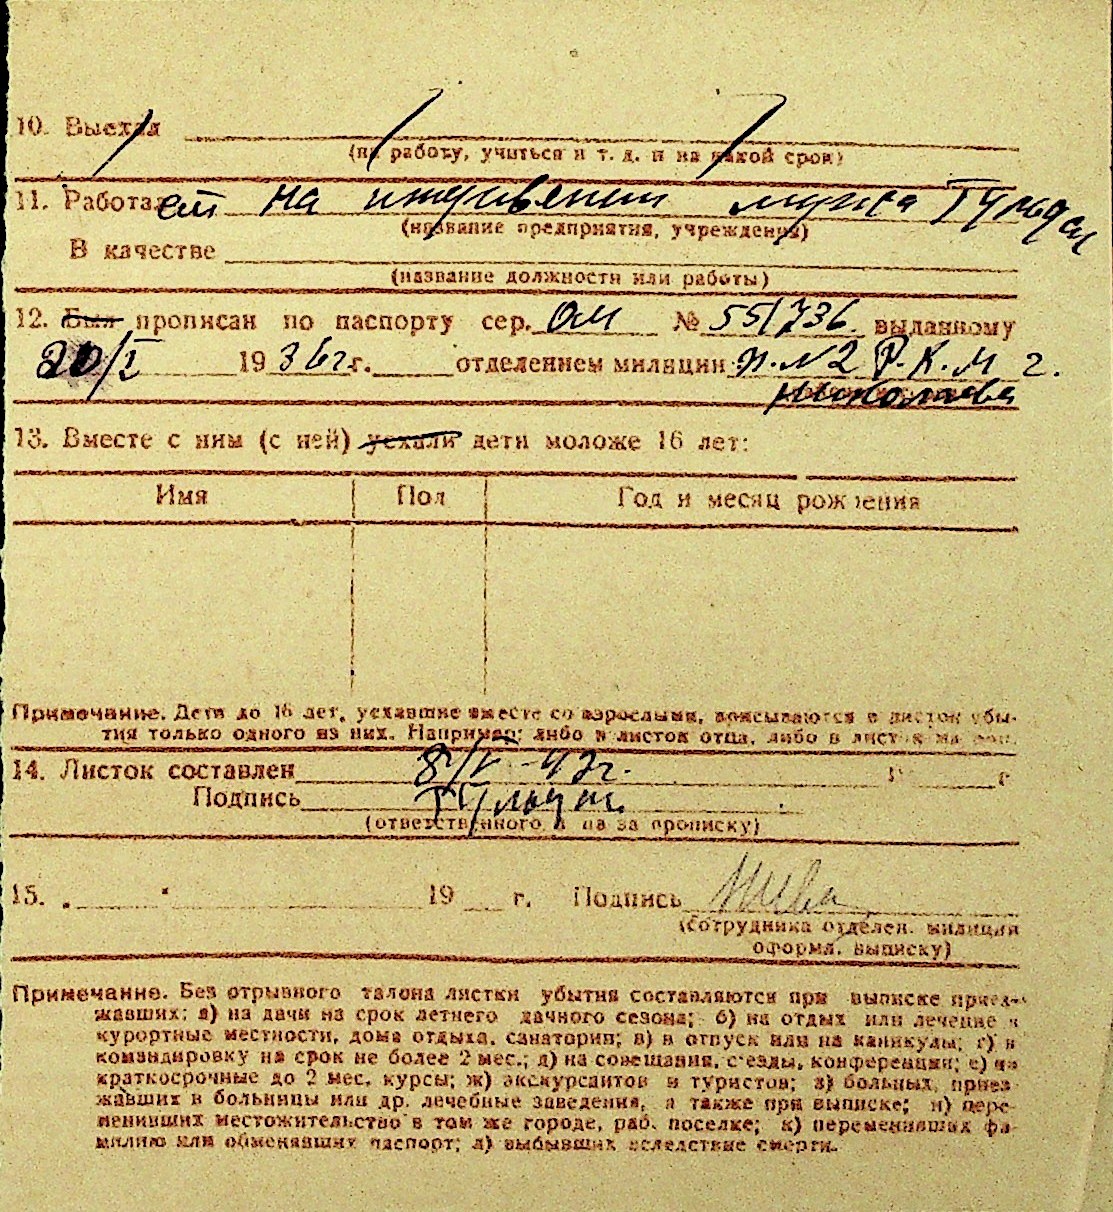 10. Выехал
(на работу, учиться и т. д. и на какой срок)
11. Работает на иждивении мужа
(название предприятия, учреждения)
В качестве
(название должности или работы)
12. Был прописан по паспорту сер. ОМ № 551736 выданному
20/I 1936 г г. отделением милиции п. N2 Р.К.М г.
Николаева
13. Вместе с ним (с ней) уехали дети моложе 16 лет:
Имя Пол Год и месяц рождения
Примечание. Дети до 16 лет, уехавшие вместе со взрослыми, вписываются в листок убы-
тия только одного из них. Например: либо в листок отца, либо в листок ма
14. Листок составлен 8/V-42г. г
Подпись
(ответственного за прописку)
15. " 19 г. Подпись
(Сотрудника отделен. милиции
оформл. выписку)
Примечание. Без отрывного талона листки убытия составляются при выписке приез-
жавших: а) на дачи на срок летнего дачного сезона; б) на отдых или лечение в
курортные местности, дома отдыха, санатории; в) в отпуск или на каникулы; г) в
командировку на срок не более 2 мес.; д) на совещания, съезды, конференции; е) на
краткосрочные до 2 мес. курсы; ж) экскурсантов и туристов; з) больных, приез-
жавших в больницы или др. лечебные заведения, а также при выписке; и) пере-
менивших местожительство в том же городе, раб. поселке; к) переменивших фа-
милию или обменявших паспорт; л) выбывших вследствие смерти.